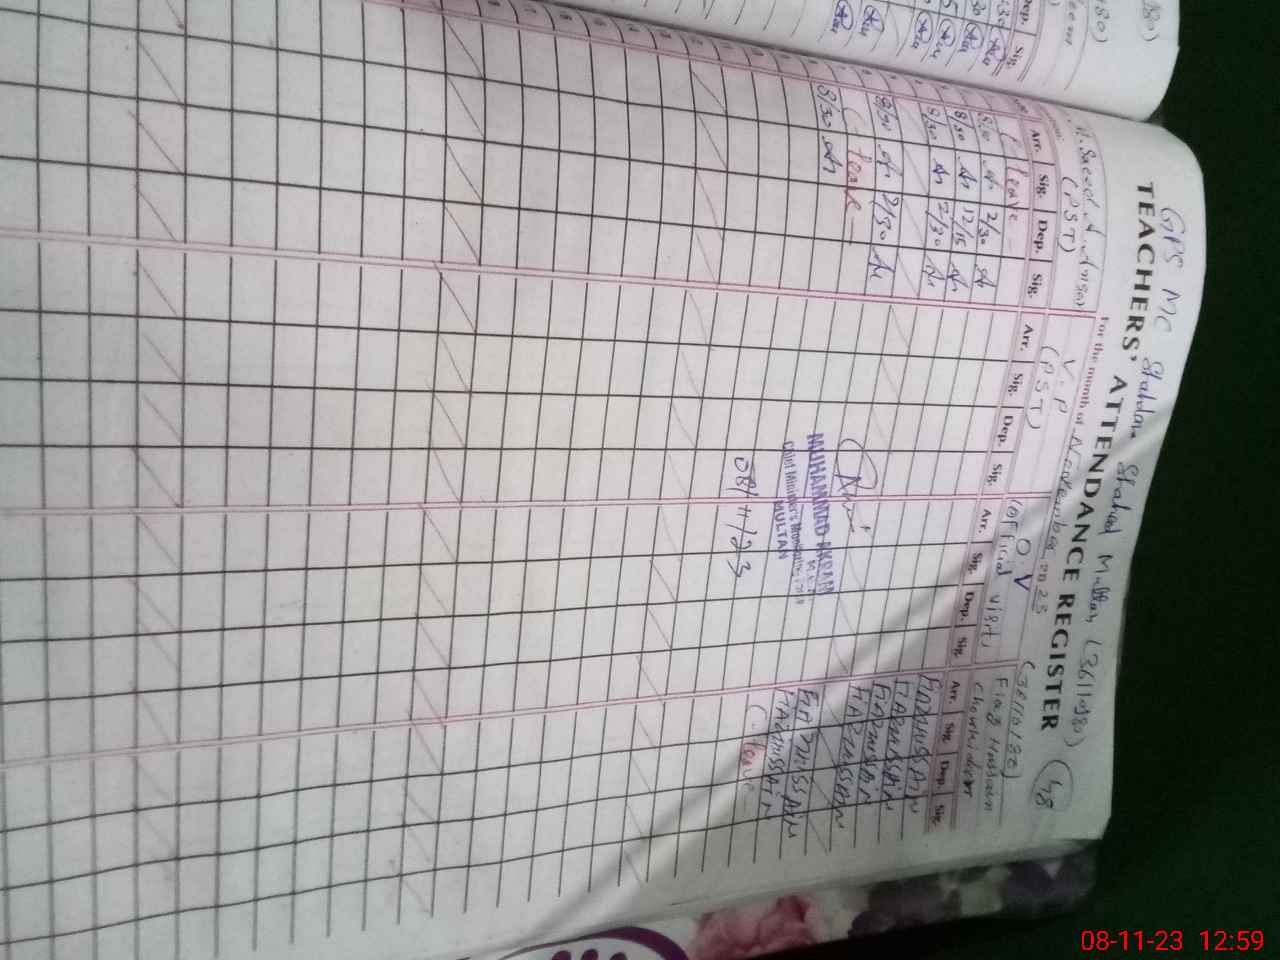 GPS MC Shahdana Shaheed Multan (36110180)
TEACHERS' ATTENDANCE REGISTER
48
For the month of November 2023
(36110180)
M. Saeed A. Ansari
(PST)
V.P
(PST)
O.V
(Official visit)
Fiaz Hussain
Chowkidar
Arr. Sig. Dep. Sig. Arr. Sig. Dep. Sig. Arr. Sig. Dep. Sig. Arr. Sig. Dep. Sig.
(- leave -
8/30 2/30
8/30 12/15
8/30 2/30
8/30 2/30
(- leave -
8/30
FIAZHUSSAIN
FIAZHUSSAIN
FIAZHUSSAIN
FIAZHUSSAIN
FIAZHUSSAIN
FIAZHUSSAIN
(- leave -
MUHAMMAD AKRAM
Chief Minister's Monitoring
MULTAN
08/11/23
Dep. Sig.
08-11-23 12:59